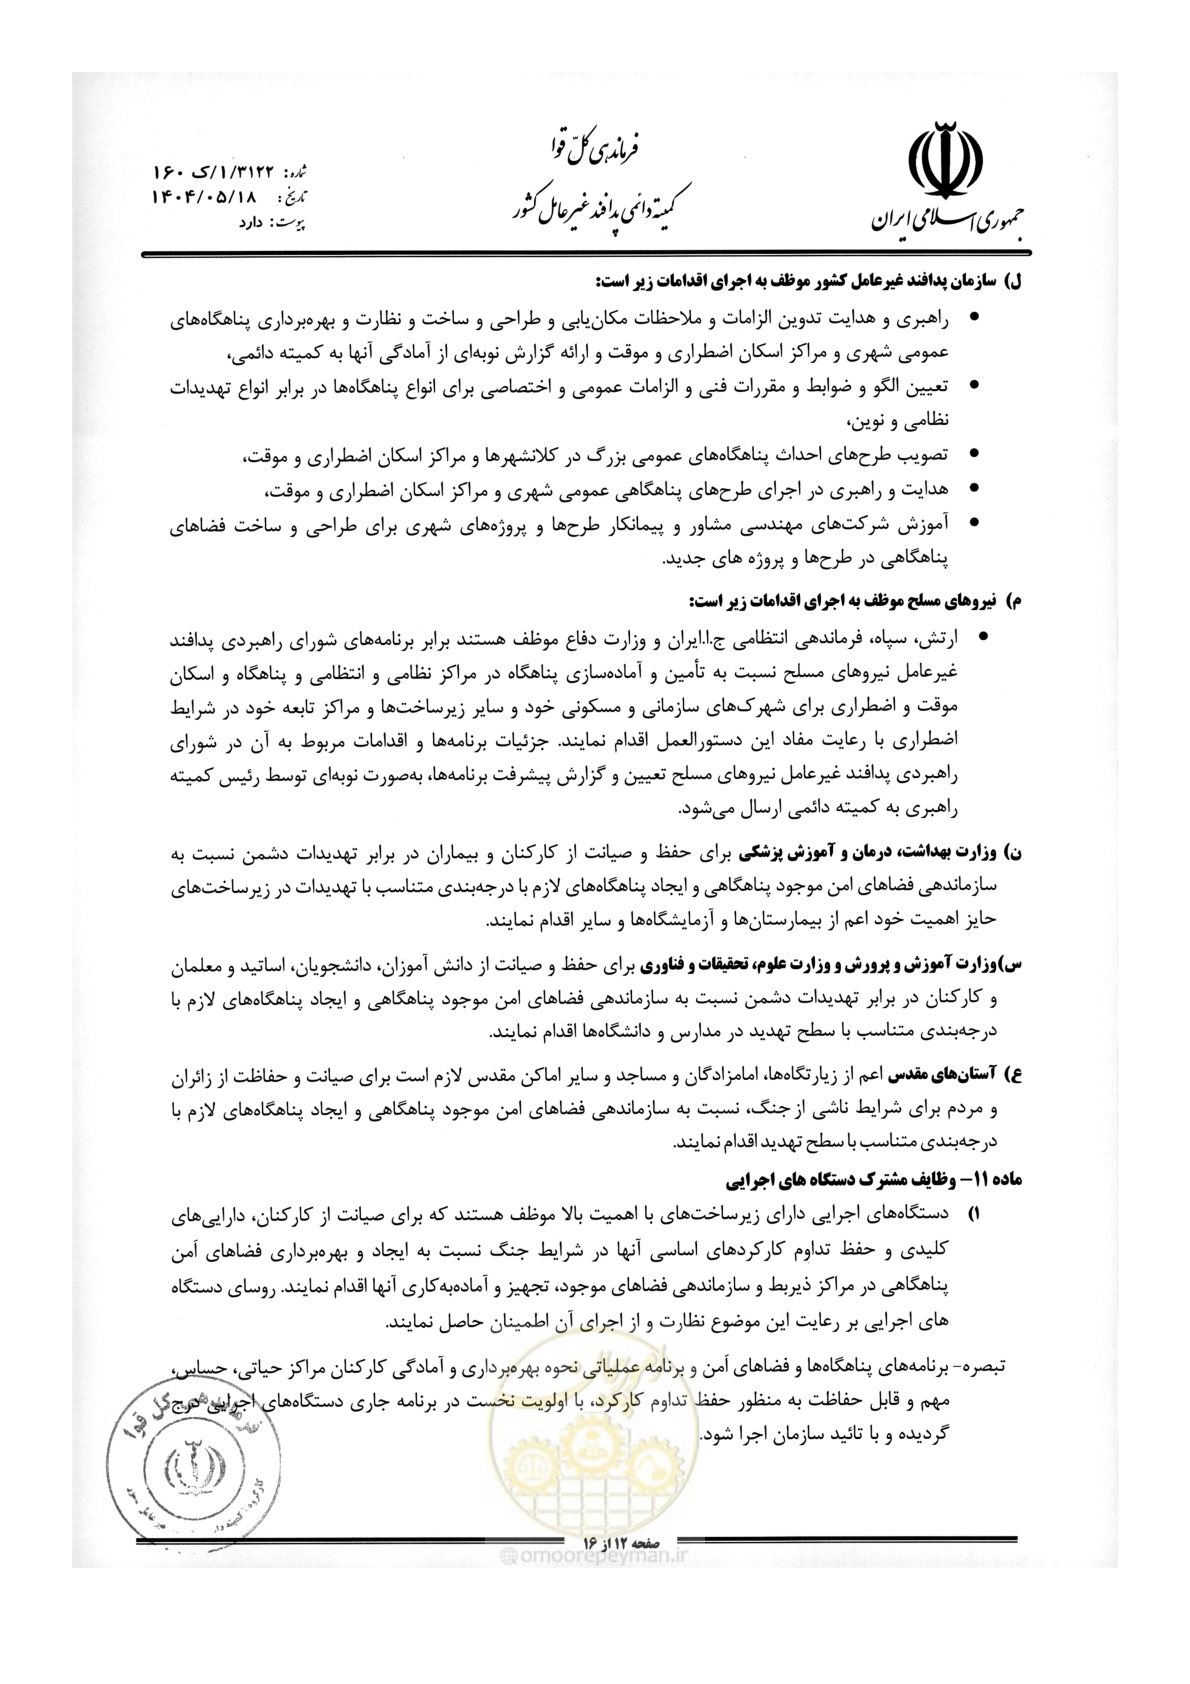 جمهوری اسلامی ایران
فرماندهی کلّ قوا
کمیته دائمی پدافند غیرعامل کشور
شماره: ۱/۳۱۲۲/ک ۱۶۰
تاریخ: ۱۴۰۴/۰۵/۱۸
پیوست: دارد
ل) سازمان پدافند غیرعامل کشور موظف به اجرای اقدامات زیر است:
● راهبری و هدایت تدوین الزامات و ملاحظات مکان‌یابی و طراحی و ساخت و نظارت و بهره‌برداری پناهگاه‌های
عمومی شهری و مراکز اسکان اضطراری و موقت و ارائه گزارش نوبه‌ای از آمادگی آنها به کمیته دائمی،
● تعیین الگو و ضوابط و مقررات فنی و الزامات عمومی و اختصاصی برای انواع پناهگاه‌ها در برابر انواع تهدیدات
نظامی و نوین،
● تصویب طرح‌های احداث پناهگاه‌های عمومی بزرگ در کلانشهرها و مراکز اسکان اضطراری و موقت،
● هدایت و راهبری در اجرای طرح‌های پناهگاهی عمومی شهری و مراکز اسکان اضطراری و موقت،
● آموزش شرکت‌های مهندسی مشاور و پیمانکار طرح‌ها و پروژه‌های شهری برای طراحی و ساخت فضاهای
پناهگاهی در طرح‌ها و پروژه های جدید.
م) نیروهای مسلح موظف به اجرای اقدامات زیر است:
● ارتش، سپاه، فرماندهی انتظامی ج.ا.ایران و وزارت دفاع موظف هستند برابر برنامه‌های شورای راهبردی پدافند
غیرعامل نیروهای مسلح نسبت به تأمین و آماده‌سازی پناهگاه در مراکز نظامی و انتظامی و پناهگاه و اسکان
موقت و اضطراری برای شهرک‌های سازمانی و مسکونی خود و سایر زیرساخت‌ها و مراکز تابعه خود در شرایط
اضطراری با رعایت مفاد این دستورالعمل اقدام نمایند. جزئیات برنامه‌ها و اقدامات مربوط به آن در شورای
راهبردی پدافند غیرعامل نیروهای مسلح تعیین و گزارش پیشرفت برنامه‌ها، به‌صورت نوبه‌ای توسط رئیس کمیته
راهبری به کمیته دائمی ارسال می‌شود.
ن) وزارت بهداشت، درمان و آموزش پزشکی برای حفظ و صیانت از کارکنان و بیماران در برابر تهدیدات دشمن نسبت به
سازماندهی فضاهای امن موجود پناهگاهی و ایجاد پناهگاه‌های لازم با درجه‌بندی متناسب با تهدیدات در زیرساخت‌های
حایز اهمیت خود اعم از بیمارستان‌ها و آزمایشگاه‌ها و سایر اقدام نمایند.
س)وزارت آموزش و پرورش و وزارت علوم، تحقیقات و فناوری برای حفظ و صیانت از دانش آموزان، دانشجویان، اساتید و معلمان
و کارکنان در برابر تهدیدات دشمن نسبت به سازماندهی فضاهای امن موجود پناهگاهی و ایجاد پناهگاه‌های لازم با
درجه‌بندی متناسب با سطح تهدید در مدارس و دانشگاه‌ها اقدام نمایند.
ع) آستان‌های مقدس اعم از زیارتگاه‌ها، امامزادگان و مساجد و سایر اماکن مقدس لازم است برای صیانت و حفاظت از زائران
و مردم برای شرایط ناشی از جنگ، نسبت به سازماندهی فضاهای امن موجود پناهگاهی و ایجاد پناهگاه‌های لازم با
درجه‌بندی متناسب با سطح تهدید اقدام نمایند.
ماده ۱۱- وظایف مشترک دستگاه های اجرایی
۱) دستگاه‌های اجرایی دارای زیرساخت‌های با اهمیت بالا موظف هستند که برای صیانت از کارکنان، دارایی‌های
کلیدی و حفظ تداوم کارکردهای اساسی آنها در شرایط جنگ نسبت به ایجاد و بهره‌برداری فضاهای اَمن
پناهگاهی در مراکز ذیربط و سازماندهی فضاهای موجود، تجهیز و آماده‌به‌کاری آنها اقدام نمایند. روسای دستگاه
های اجرایی بر رعایت این موضوع نظارت و از اجرای آن اطمینان حاصل نمایند.
تبصره- برنامه‌های پناهگاه‌ها و فضاهای اَمن و برنامه عملیاتی نحوه بهره‌برداری و آمادگی کارکنان مراکز حیاتی، حساس،
مهم و قابل حفاظت به منظور حفظ تداوم کارکرد، با اولویت نخست در برنامه جاری دستگاه‌های اجرایی درج
گردیده و با تائید سازمان اجرا شود.
فرماندهی کل قوا
صفحه ۱۲ از ۱۶
@omoorepeyman.ir